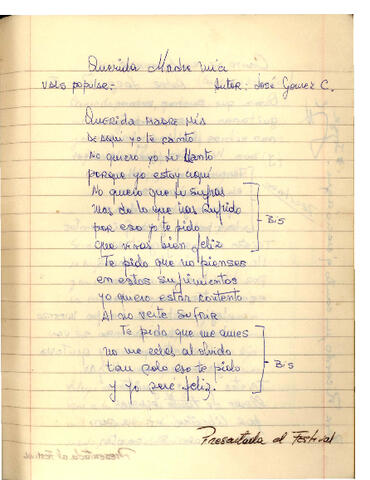 Querida Madre mia
Vals popular.- Autor: José Gomez C.
QUERIDA MADRE MIA
DEAQUI YO TE CANTO
NO QUIERO YO TU LLANTO
PORQUE YO ESTOY AQUI
NO QUIERO QUE tu SUFRAS
MAS DE LO QUE HAS SUFRIDO
POR ESO YO TE PIDO
QUE VIVAS BIEN FELIZ
BIS
TE PIDO QUE NO PIENSES
EN ESTOS SUFRIMIENTOS
YO QUIERO ESTAR CONTENTO
AL NO VERTE SUFRIR
TE PIDO QUE ME AMES
NO ME ECHES AL OLVIDO
TAN SOLO ESO TE PIDO
Y YO SERE FELIZ.
BIS
Presentada al Festival